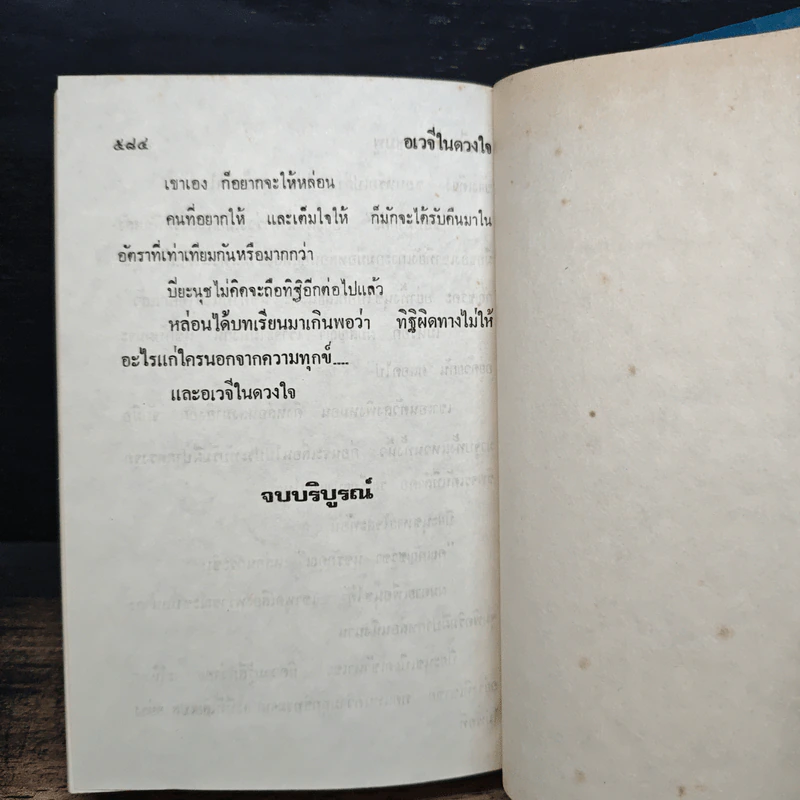 ๕๘๔ อเวจีในดวงใจ
เขาเอง ก็อยากจะให้หล่อน
คนที่อยากให้ และเต็มใจให้ ก็มักจะได้รับคืนมาใน
อัตราที่เท่าเทียมกันหรือมากกว่า
ปิยะนุชไม่คิดจะถือทิฐิอีกต่อไปแล้ว
หล่อนได้บทเรียนมาเกินพอว่า ทิฐิผิดทางไม่ให้
อะไรแก่ใครนอกจากความทุกข์....
และอเวจีในดวงใจ
จบบริบูรณ์